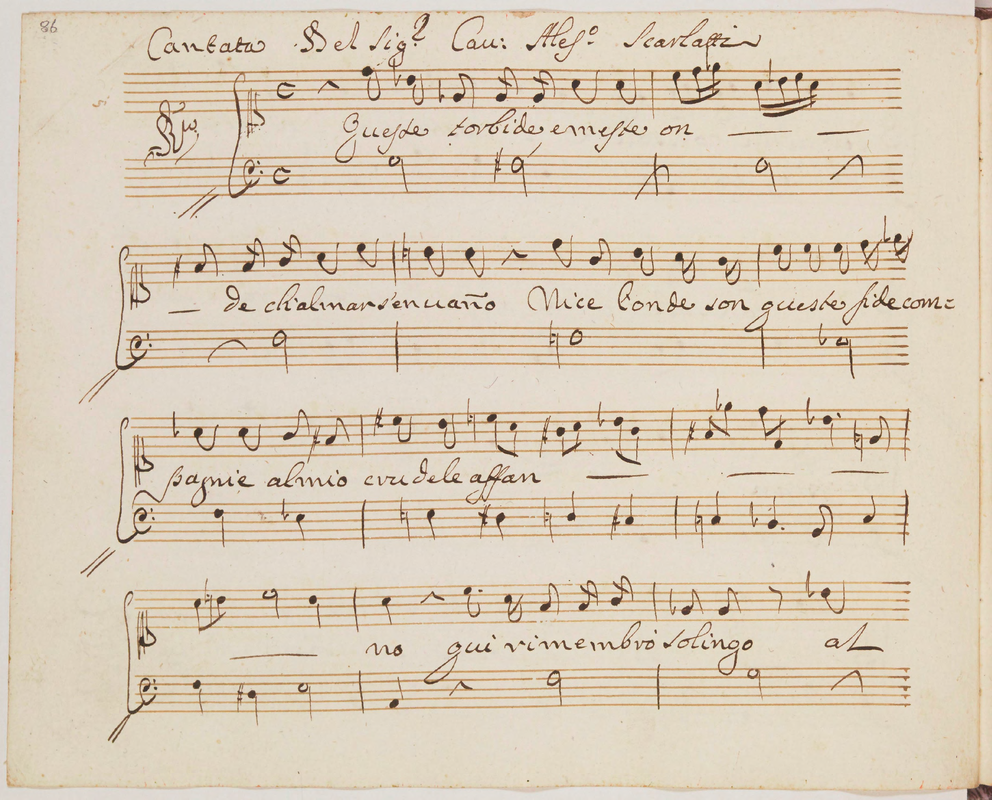 86
Cantata Del Sig.r Cau: Ales.o Scarlatti
Queste torbide e meste on
de ch'al mar s'en uaño Nice l'onde son queste fide com=
pagnie al mio crudele affan
no qui rimembro solingo al